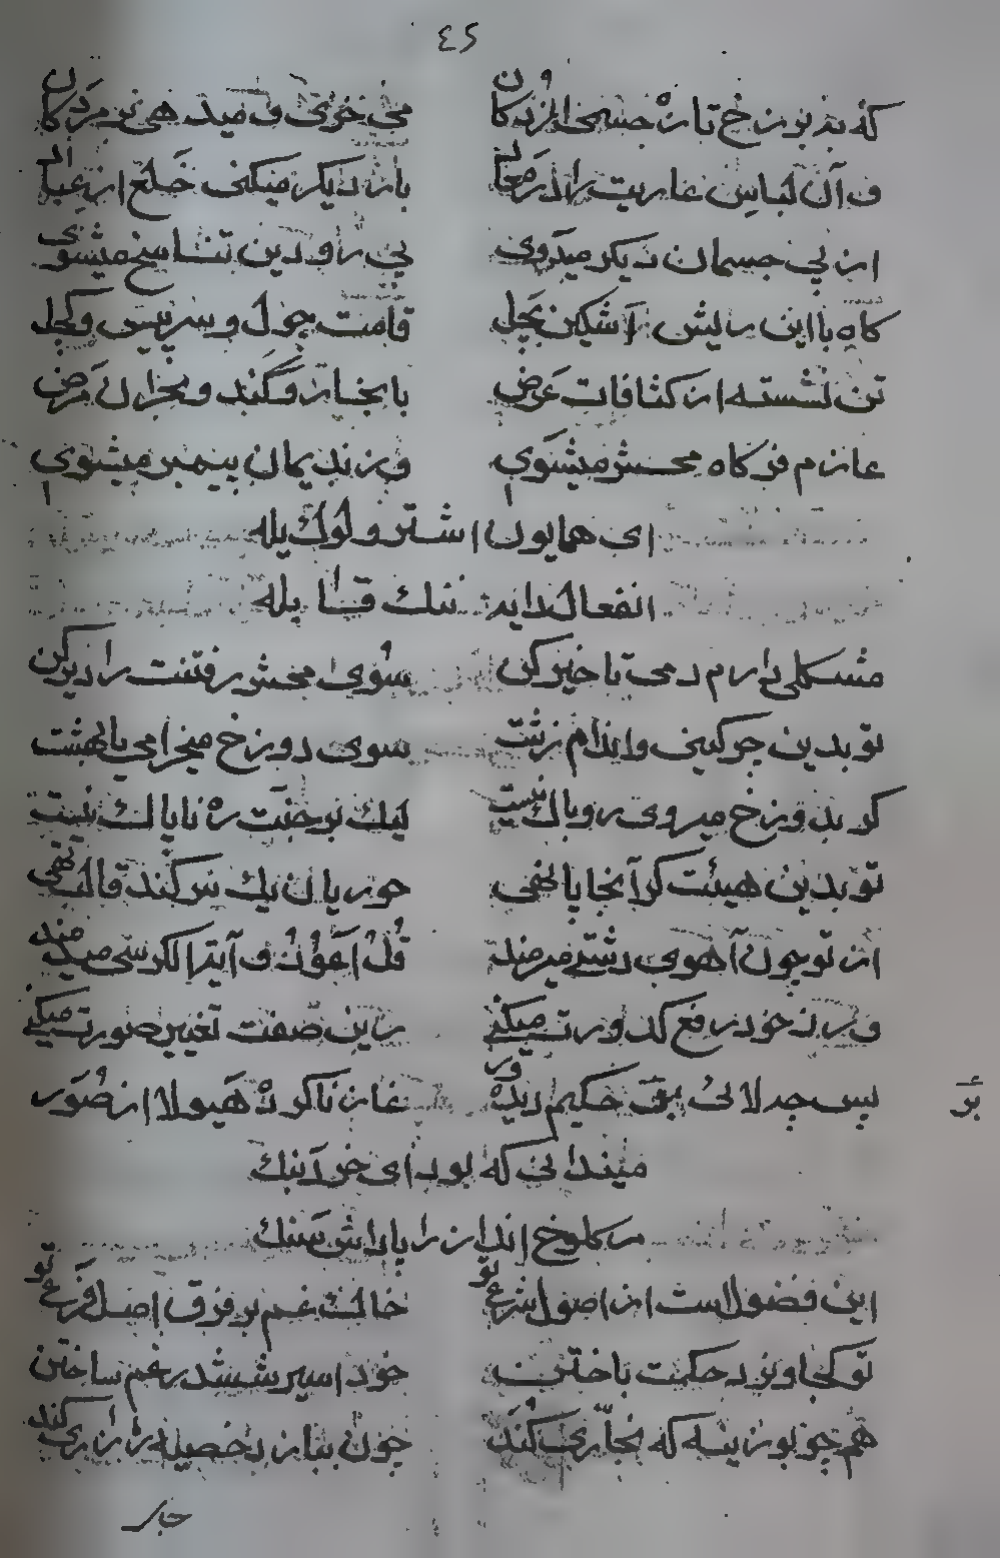 ٤٥
که بدیوزخ تازه جسمی از زندکان می خوری و میدهی تن مردکان
و آن لباس عاریت را در باز دیکر میکنی خلع از عبا
از پی جسمان دیکر میدوی پی رو دین تناسخ میشوی
کاه با این ریش قامت چول و سر پیس و کچل
تن نشسته از کثافات عرض با بخار و کند و بحران مرض
عازم درکاه محشر میشوی وز ندیمان پیمبر میشوی
ای همایون اشتر و لوک یله
انفعال نداید ننک قافله
مشکلی دارم دمی تاخیر کن سوی محشر رفتنت را دیر کن
تو بدین چرکینی و اندام زشت سوی دوزخ میخرامی یا بهشت
کر بدوزخ میروی رو باک نیست لیک بر جنت ره ناپاک نیست
تو بدین هیئت کر آنجا پا نهی حوریان نیک بس کنند قالب تهی
از تو چون آهوی دشتی میرمند قل اعوذ و آیة الکرسی میدمند
ور ز خود رفع کدورت میکنی زین صفت تغییر صورت میکنی
پس چه لائی بق حکیم دیده‌ور عار ناکرده هیولا از صور
میندانی که بود ای خر دبنک
مر کلوخ انداز را پاداش سنک
این فضول است از اصول شرع تو خاک غم بر فرق اصل و فرع تو
تو کجا و نرد حکمت باختن خود اسیر ششدر غم ساختن
همچو بوزینه که نجاری کند چون بناز دخصیه زاری کند
بر